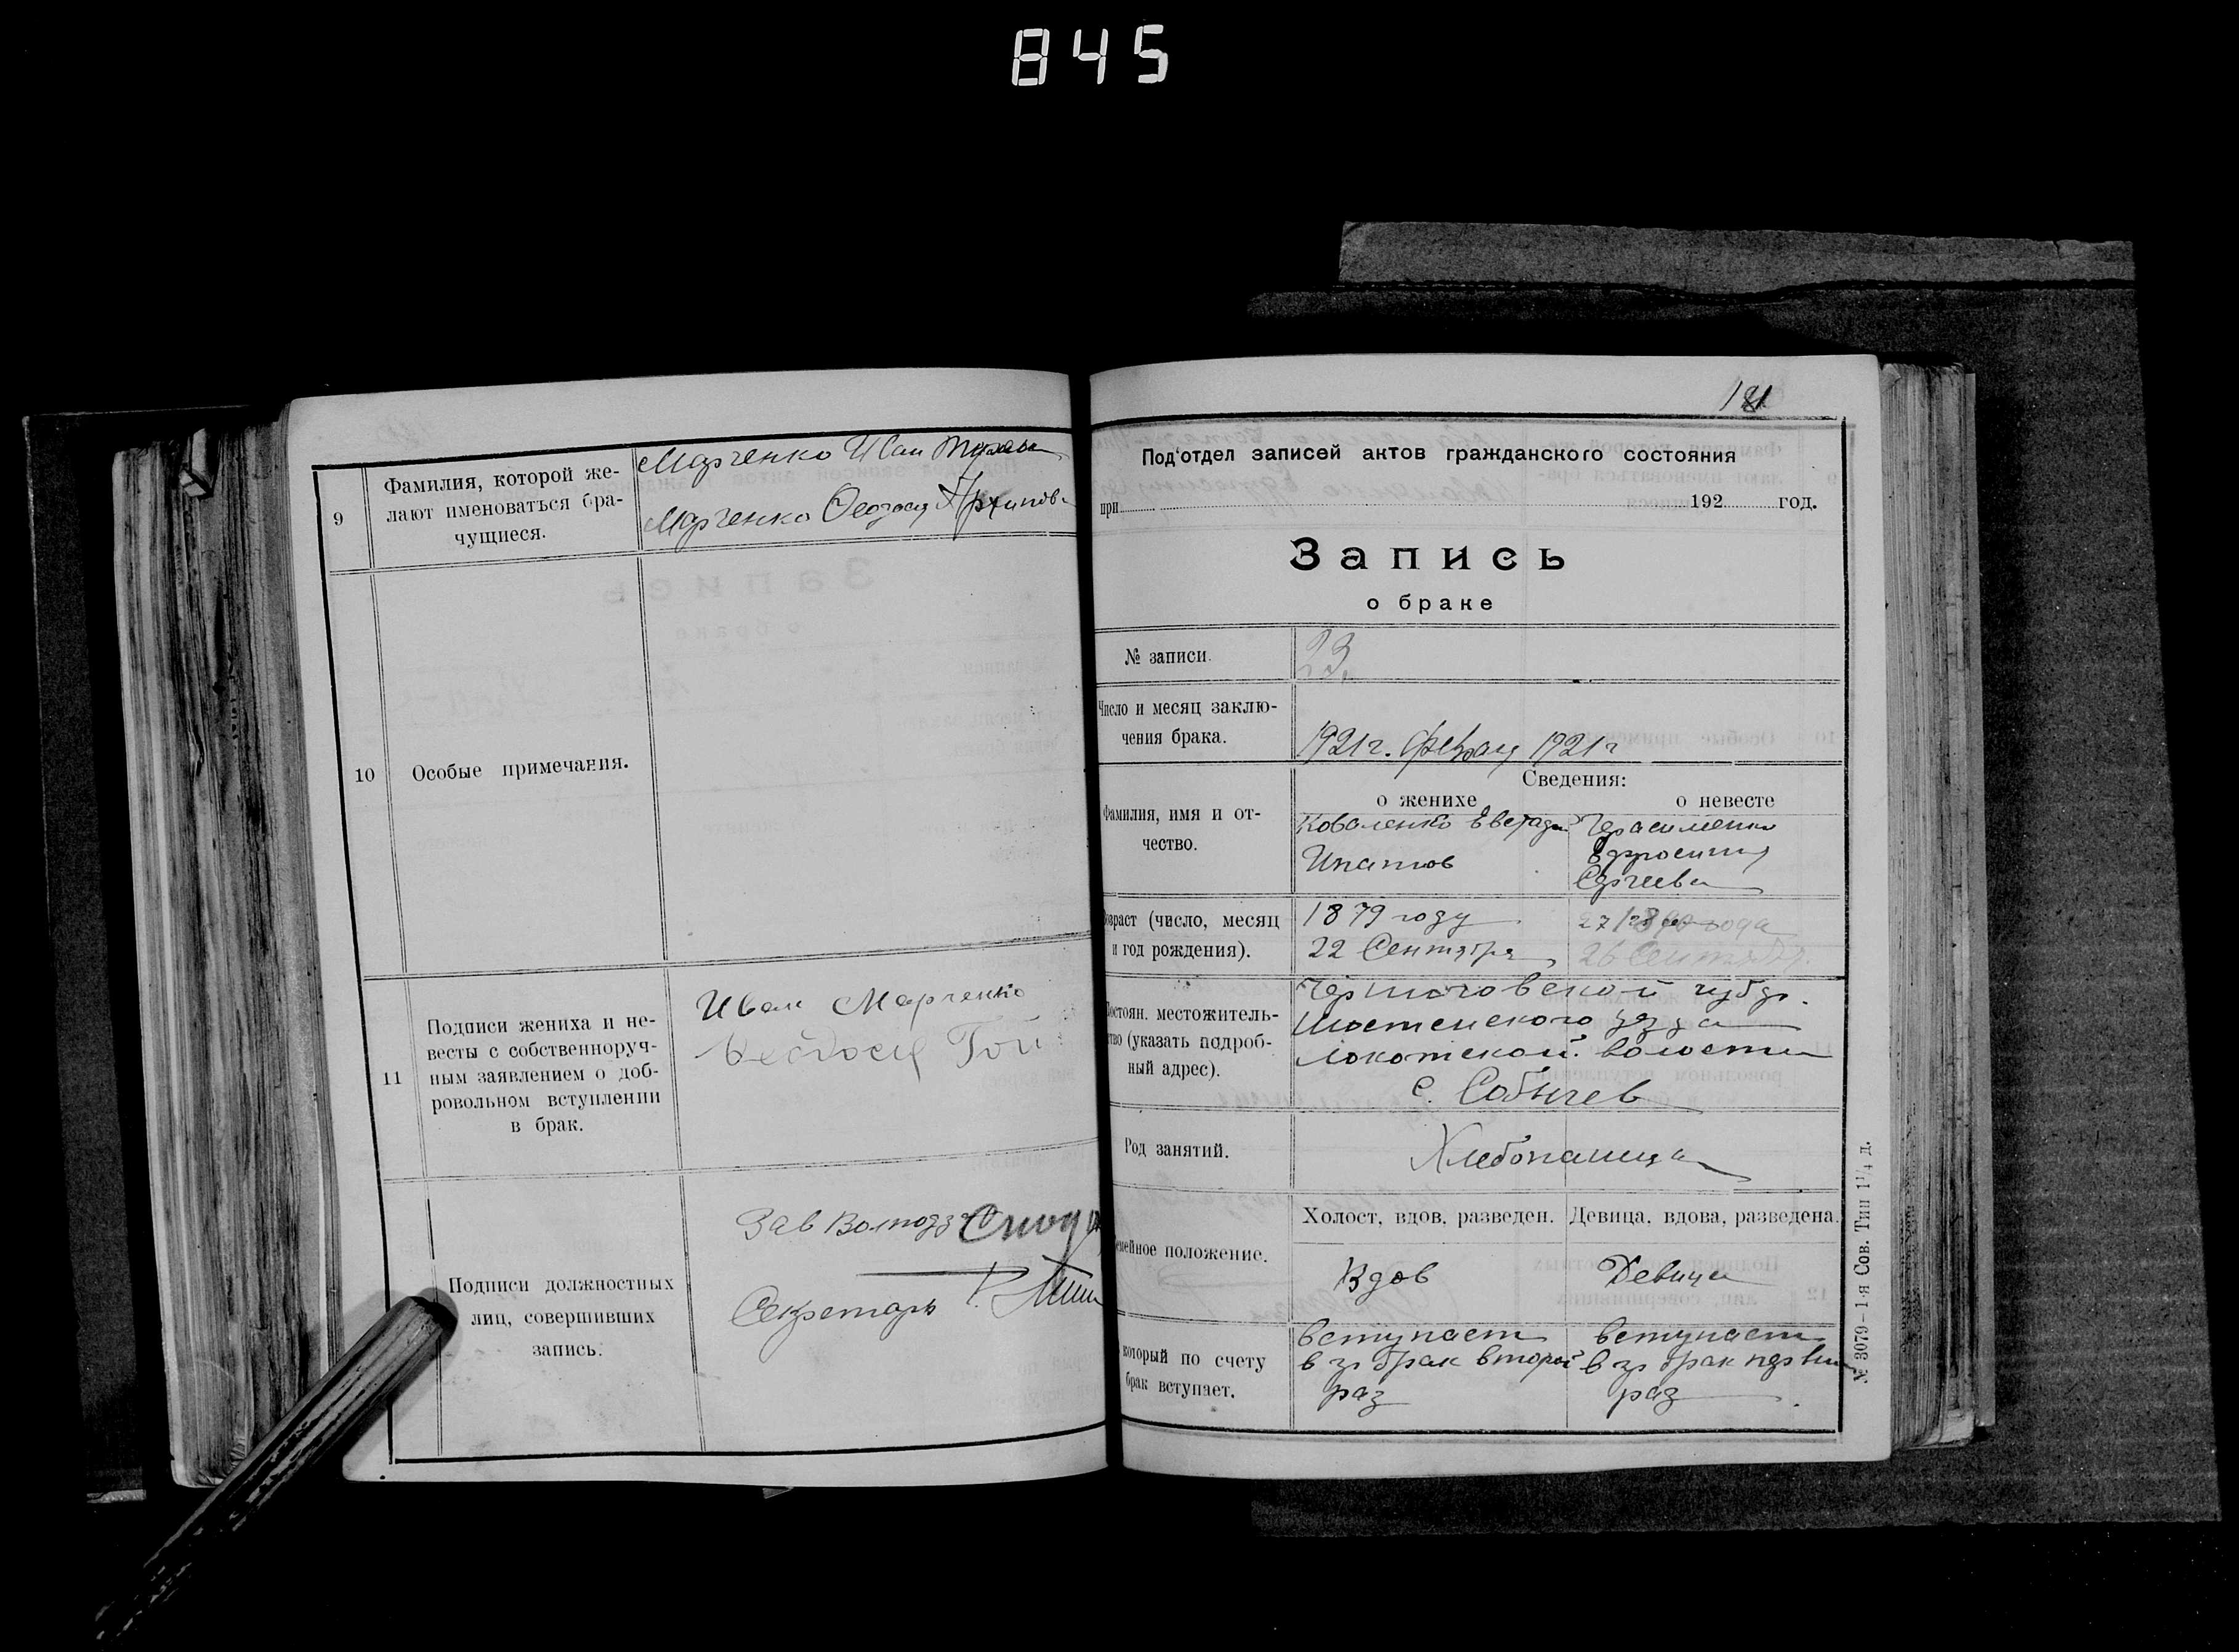 845
9
Фамилия, которой же-
лают именоваться бра-
чущиеся.
Марченко Иван
Марченко Феодося Архипов
10
Особые примечания.
11
Подписи жениха и не-
весты с собственноруч-
ным заявлением о доб-
ровольном вступлении
в брак.
Иван Марченко
Феодося Гой
Подписи должностных
лиц, совершивших
запись.
Зав
Секретарь
181
Под'отдел записей актов гражданского состояния
при 192 год.
Запись
о браке
№ записи.
23.
Число и месяц заклю-
чения брака.
1921г. Февраля 1921г
Сведения:
о женихе
о невесте
Фамилия, имя и от-
чество.
Коваленко
Ипатов
Герасименко
Ефросиния
Сергеева
Возраст (число, месяц
и год рождения).
1879 году
22 Сентября
1890 года
26 Сентября
Постоян. местожитель-
ство (указать подроб-
ный адрес).
Черниговской губер.
Шостенского уезда
Локотской волости
с. Собычев
Род занятий.
Хлебопашца
Семейное положение.
Холост, вдов, разведен.
Девица, вдова, разведена.
Вдов
Девица
который по счету
брак вступает.
вступает
в эт брак второй
раз
вступает
в эт брак первый
раз
№ 3079–1-я Сов. Тип 1¼ д.